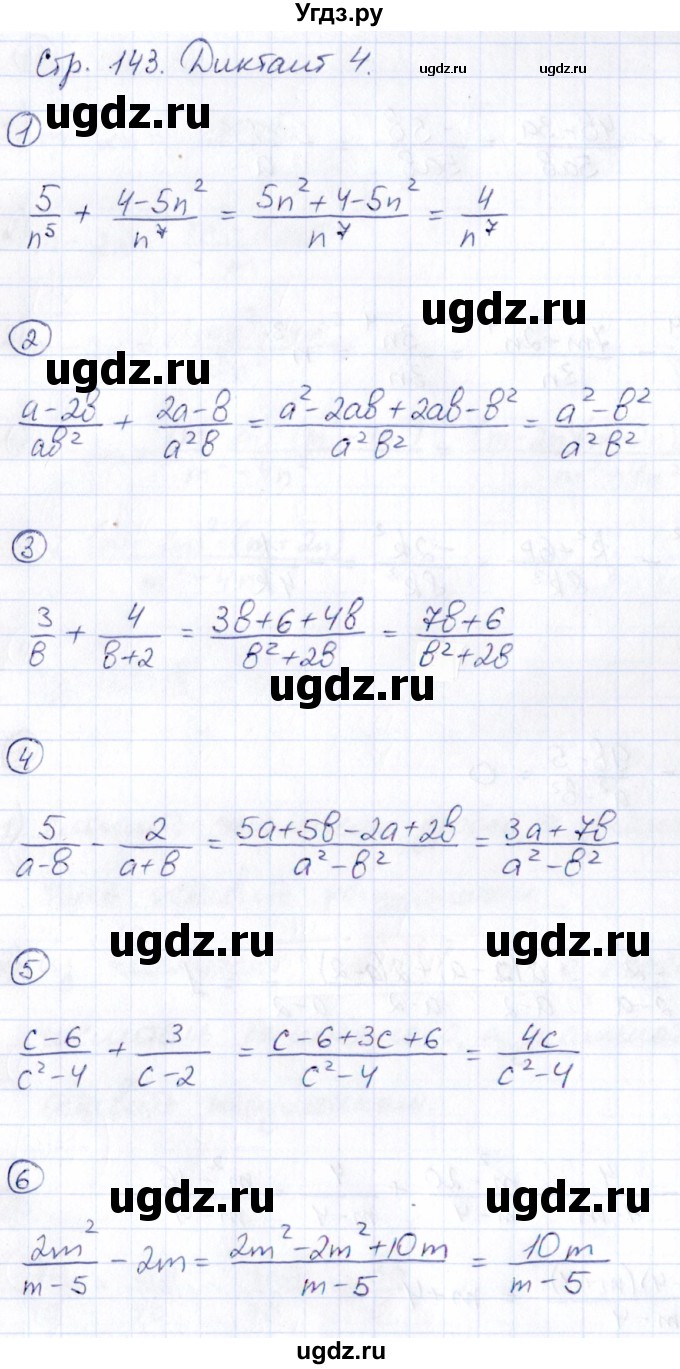 Угдз.ру
Стр. 143. Диктант 4.
ugdz.ru ugdz.ru
1
ugdz.ru
5/n⁵ + (4-5n²)/n⁷ = (5n²+4-5n²)/n⁷ = 4/n⁷
ugdz.ru
2
ugdz.ru
(a-2b)/ab² + (2a-b)/a²b = (a²-2ab+2ab-b²)/a²b² = (a²-b²)/a²b²
3
3/b + 4/(b+2) = (3b+6+4b)/(b²+2b) = (7b+6)/(b²+2b)
ugdz.ru
4
5/(a-b) - 2/(a+b) = (5a+5b-2a+2b)/(a²-b²) = (3a+7b)/(a²-b²)
ugdz.ru ugdz.ru
5
(c-6)/(c²-4) + 3/(c-2) = (c-6+3c+6)/(c²-4) = 4c/(c²-4)
6
ugdz.ru ugdz.ru
2m²/(m-5) - 2m = (2m²-2m²+10m)/(m-5) = 10m/(m-5)
ugdz.ru ugdz.ru